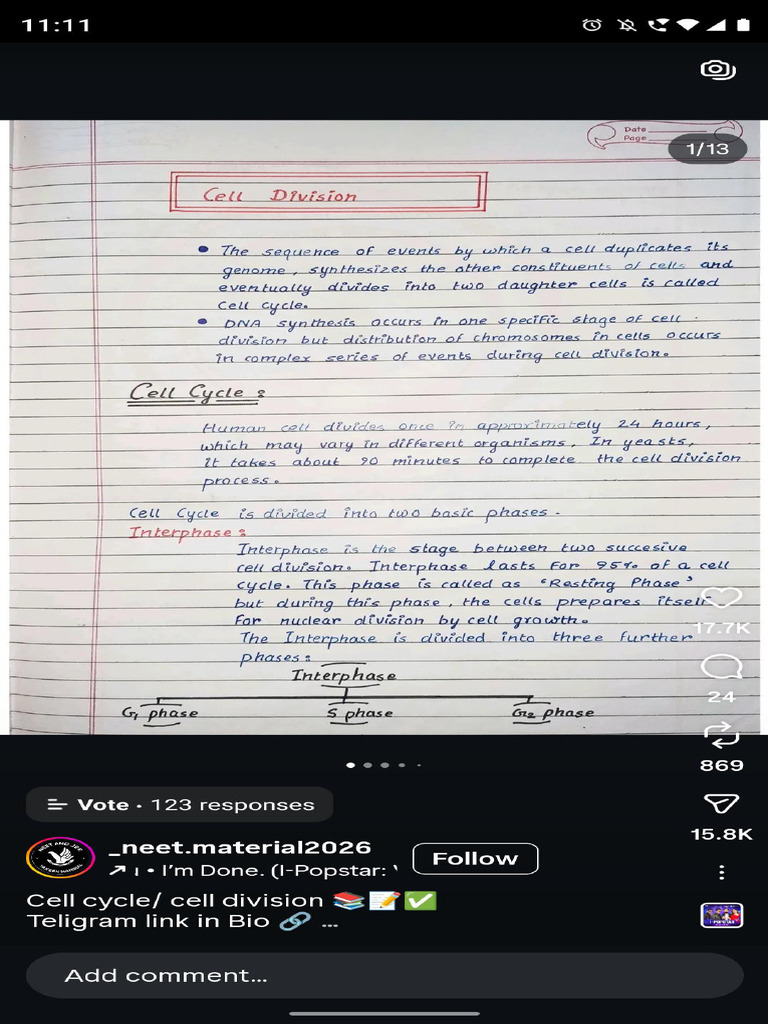 11:11
Date
Page
1/13
Cell Division
• The sequence of events by which a cell duplicates its
genome, synthesizes the other constituents of cells and
eventually divides into two daughter cells is called
Cell cycle.
• DNA synthesis occurs in one specific stage of cell
division but distribution of chromosomes in cells occurs
in complex series of events during cell division.
Cell Cycle :
Human cell divides once in approximately 24 hours,
which may vary in different organisms, In yeasts,
it takes about 90 minutes to complete the cell division
process.
Cell Cycle is divided into two basic phases.
Interphase :
Interphase is the stage between two succesive
cell division. Interphase lasts for 95% of a cell
cycle. This phase is called as 'Resting Phase'
but during this phase, the cells prepares itself
for nuclear division by cell growth.
The Interphase is divided into three further
phases :
Interphase
G1 phase S phase G2 phase
17.7K
24
869
15.8K
Vote • 123 responses
_neet.material2026
Follow
↗ ı • I'm Done. (I-Popstar:
Cell cycle/ cell division 📚📝✅
Teligram link in Bio 🔗 ...
Add comment...